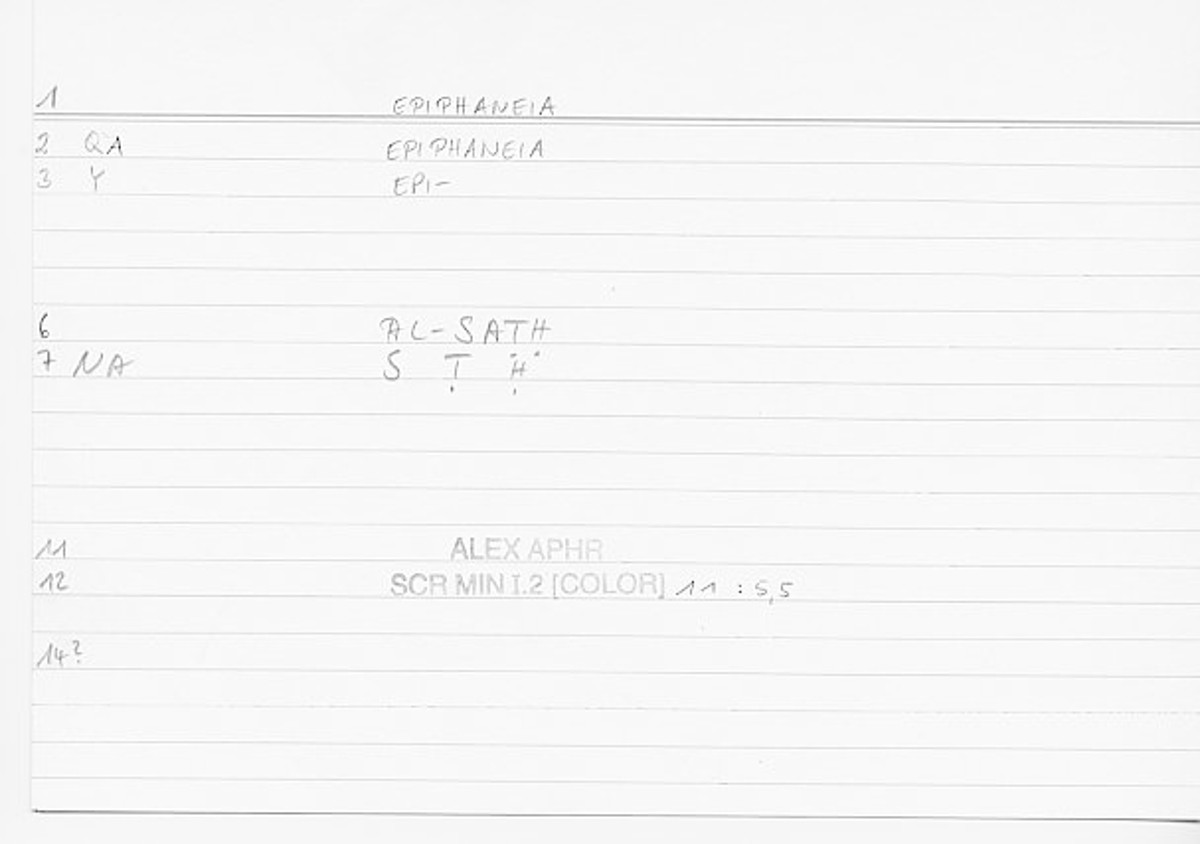 1 EPIPHANEIA
2 QA EPIPHANEIA
3 Y EPI-
6 AL-SATH
7 NA S Ṭ Ḥ
11 ALEX APHR
12 SCR MIN I.2 [COLOR] 11 : 5,5
14?